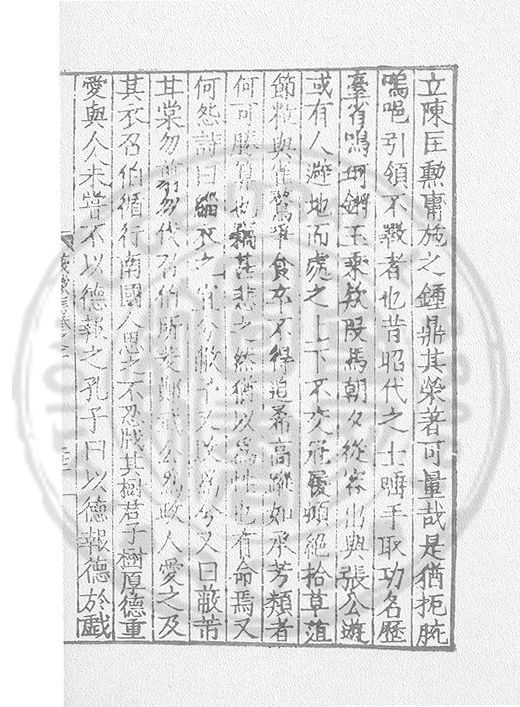 立陳匡勳庸施之鍾鼎其榮著可量哉是猶扼腕
嗚唈引領不戰者也昔昭代之士唾手取功名歷
臺省鳴珂鏘玉乘欵段馬朝夕從容出與張公遊
或有人避地而處之上下不交冠履頓絕拾草
節輕與鴛食衣不得追高如承芳類者
何可勝甚悲之然猶以為性也有命焉又
何怨詩曰緇衣之宜兮敝予又改為兮又曰蔽芾
甘棠勿翦勿伐召伯所茇鄭公為政人愛之及
其衣召伯循行南國人思之不忍戕其樹君子樹厚德重
愛與人未嘗不以德報之孔子曰以德報德於戲